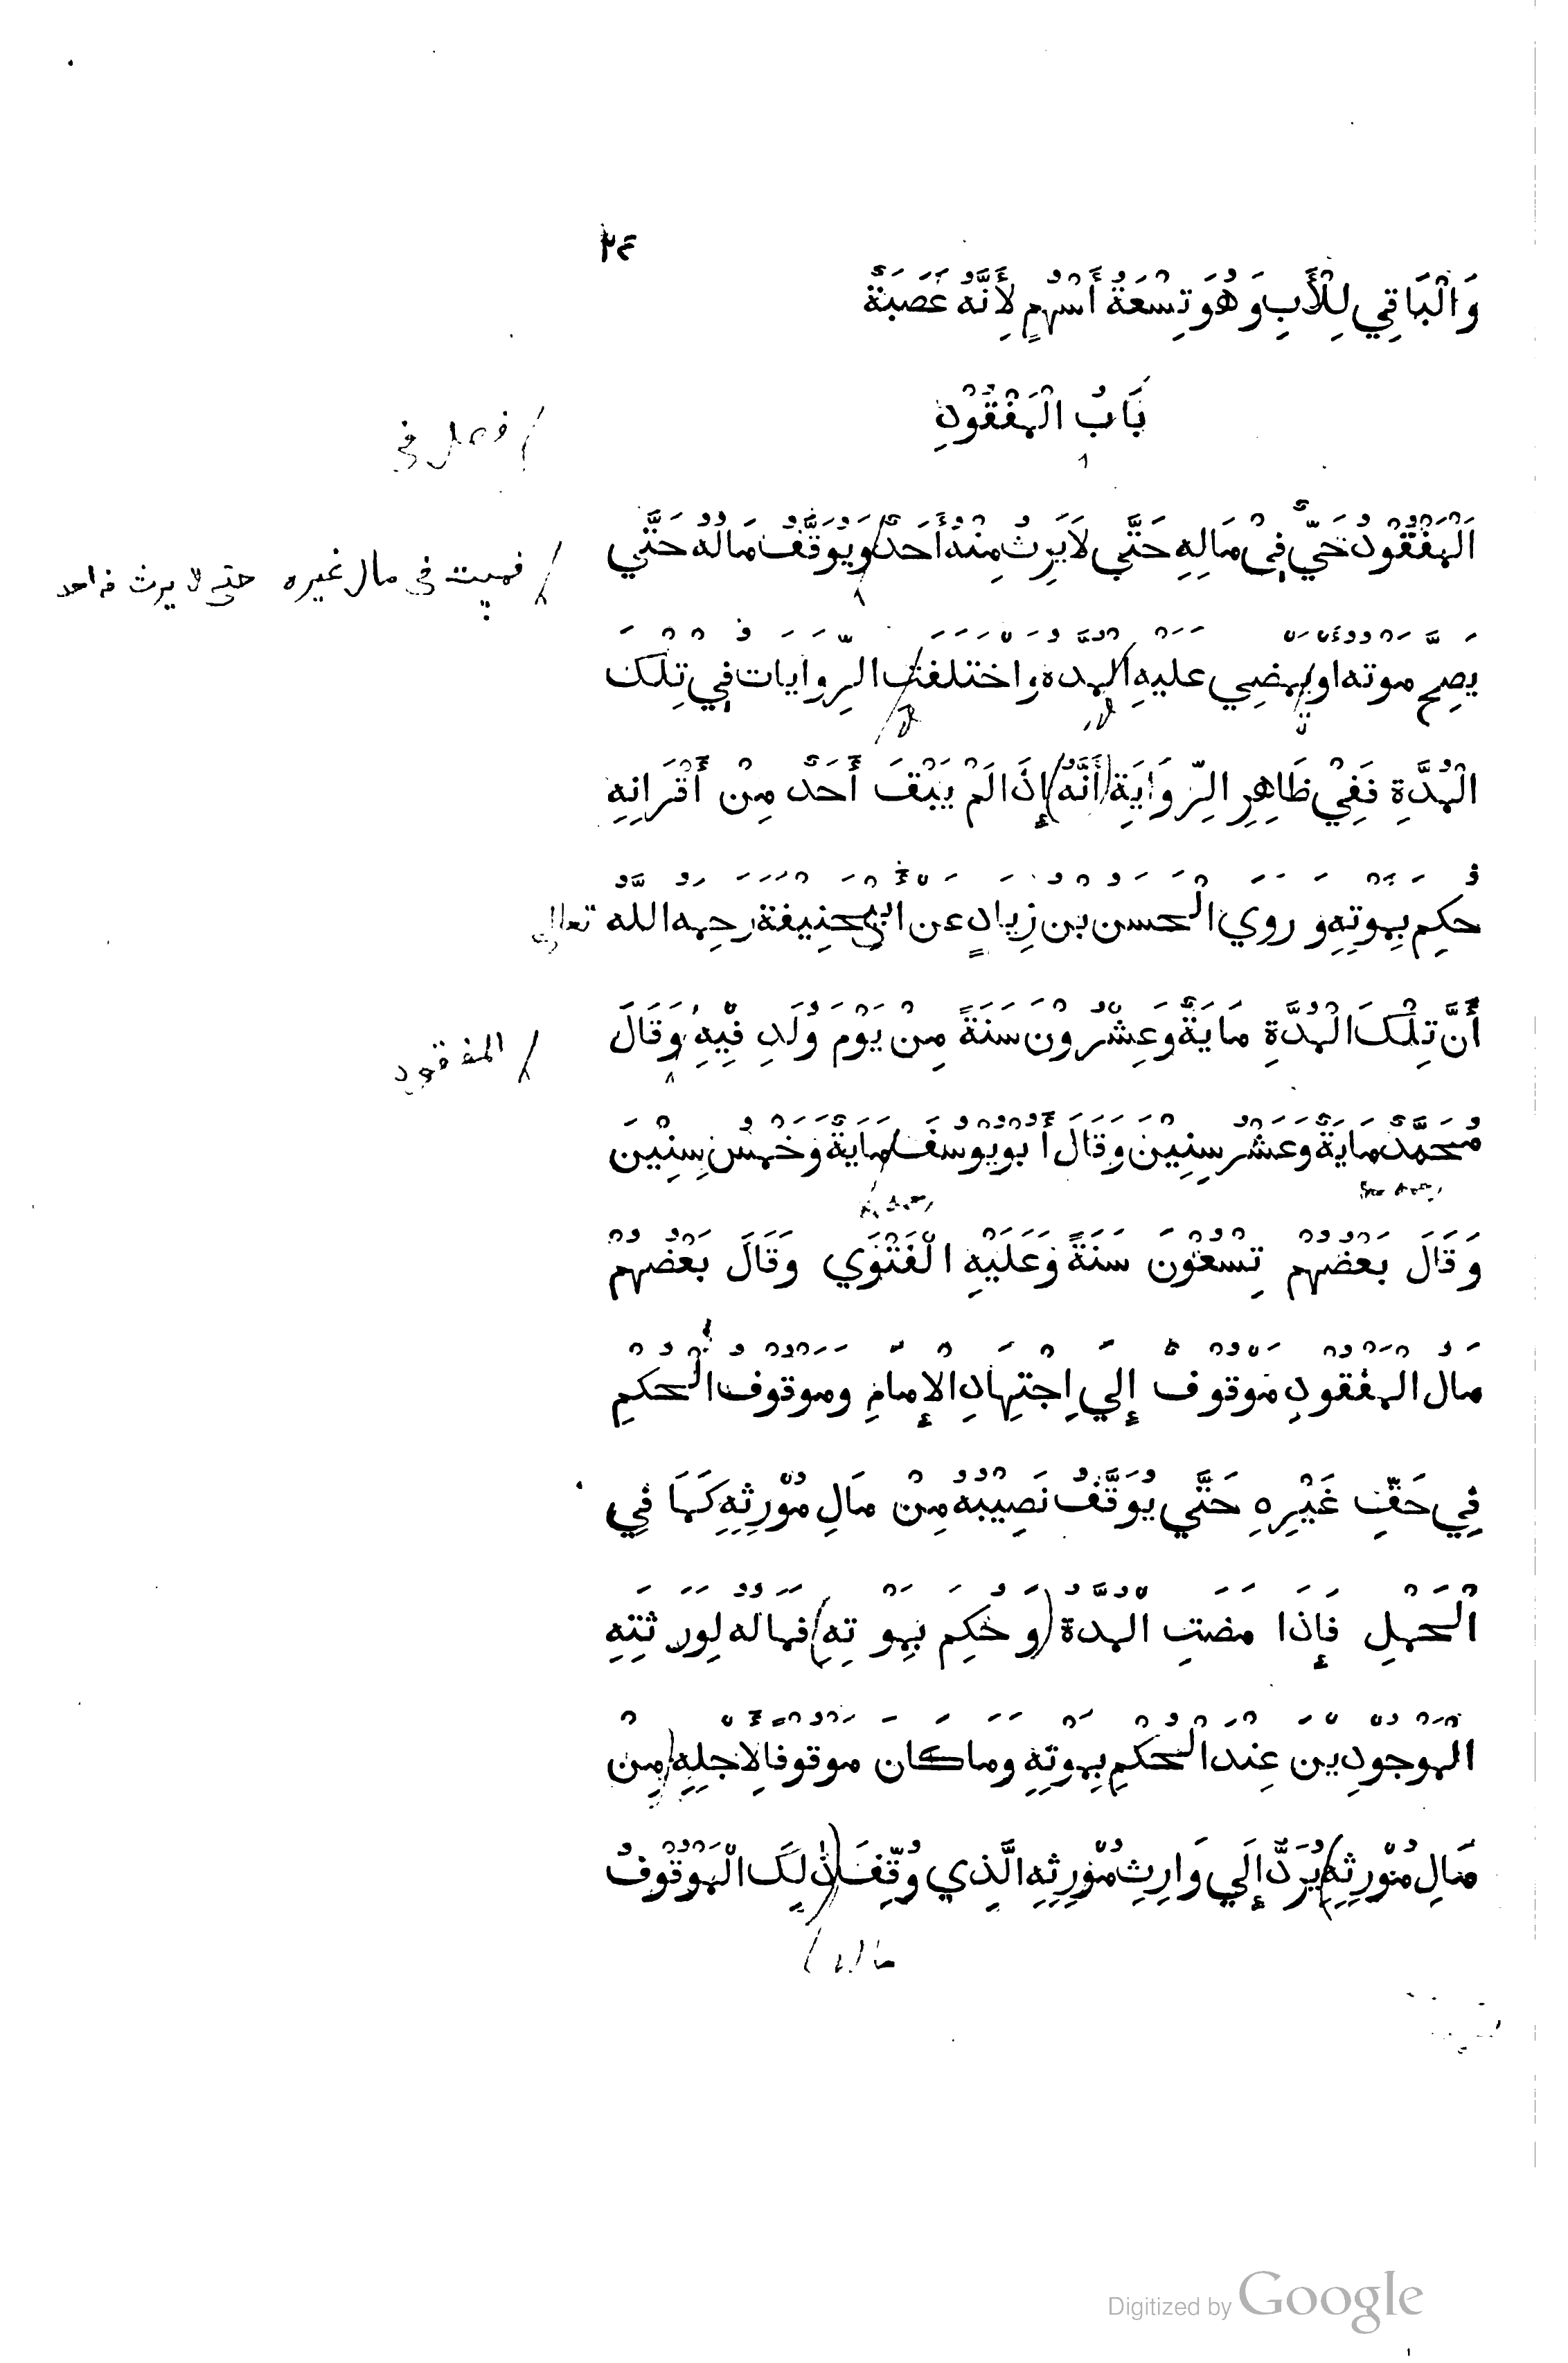 ٣٤
وَالْبَاقِي لِلْأَبِ وَهُوَ تِسْعَةُ أَسْهُمٍ لِأَنَّهُ عَصَبَةٌ
بَابُ الْمَفْقُوْدِ
فصل فى
اَلْمَفْقُوْدُ حَيٌّ فِيْ مَالِهِ حَتَّي لَا يَرِثُ مِنْهُ أَحَدٌ وَيُوَقَّفُ مَالُهُ حَتَّي
فميت فى مال غيره حتى لا يرث من احد
يَصِحَّ مَوْتُهُ اَوْ يَمْضِي عَلَيْهِ الْمُدَّةُ وَاخْتَلَفَتِ الرِّوَايَاتُ فِي تِلْكَ
الْمُدَّةِ فَفِيْ ظَاهِرِ الرِّوَايَةِ (أَنَّهُ) إِذَا لَمْ يَبْقَ أَحَدٌ مِنْ أَقْرَانِهِ
حُكِمَ بِمَوْتِهِ وَ رَوَي الْحَسَنُ بْنُ زِيَادٍ عَنْ اَبِيْ حَنِيْفَةَ رَحِمَهُ اللهُ تعالى
أَنَّ تِلْكَ الْمُدَّةِ مَايَةٌ وَعِشْرُوْنَ سَنَةً مِنْ يَوْمَ وُلَدِ فِيْهِ وَقَالَ
المفقود
مُحَمَّدٌ مَايَةٌ وَعَشْرُ سِنِيْنَ وَقَالَ أَبُويُوسُفَ مَايَةٌ وَخَمْسُ سِنِيْنَ
وَقَالَ بَعْضُهُمْ تِسْعُوْنَ سَنَةً وَعَلَيْهِ الْفَتْوَي وَقَالَ بَعْضُهُمْ
مَالُ الْمَفْقُوْدِ مَوْقُوْفٌ إِلَي اِجْتِهَادِ الْإِمَامِ وَمَوْقُوْفُ الْحُكْمِ
فِي حَقِّ غَيْرِهِ حَتَّي يُوَقَّفُ نَصِيْبُهُ مِنْ مَالِ مُوْرِثِهِ كَمَا فِي
الْحَمْلِ فَإِذَا مَضَتِ الْمُدَّةُ (وَ حُكِمَ بِمَوْتِهِ) فَمَالُهُ لِوَرَثَتِهِ
الْمَوْجُوْدِيْنَ عِنْدَ الْحُكْمِ بِمَوْتِهِ وَمَا كَانَ مَوْقُوْفًا لِأَجْلِهِ (مِنْ
مَالِ مُوْرِثِهِ) يُرَدُّ إِلَي وَارِثِ مُوْرِثِهِ الَّذِي وُقِّفَ (ذٰلِكَ الْمَوْقُوْفُ
Digitized by Google